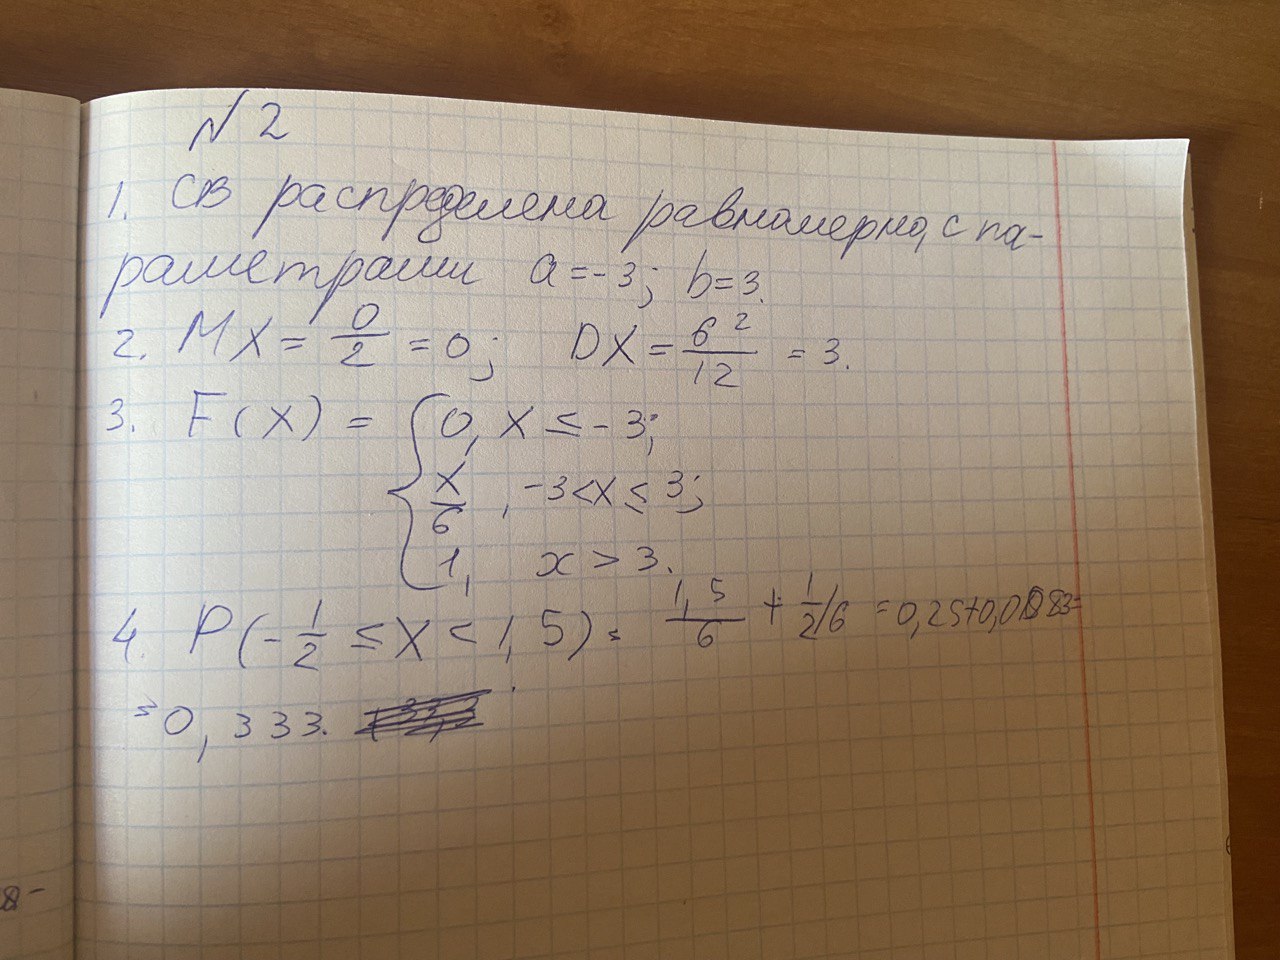 № 2
1. СВ распределена равномерно, с па-
раметрами a = -3; b = 3.
2. MX = 0/2 = 0; DX = 6²/12 = 3.
3. F(X) = { 0, X ≤ -3;
X/6, -3 < X ≤ 3;
1, x > 3.
4. P(-1/2 ≤ X < 1,5) = 1,5/6 + 1/2/6 = 0,25+0,083=
= 0,333.